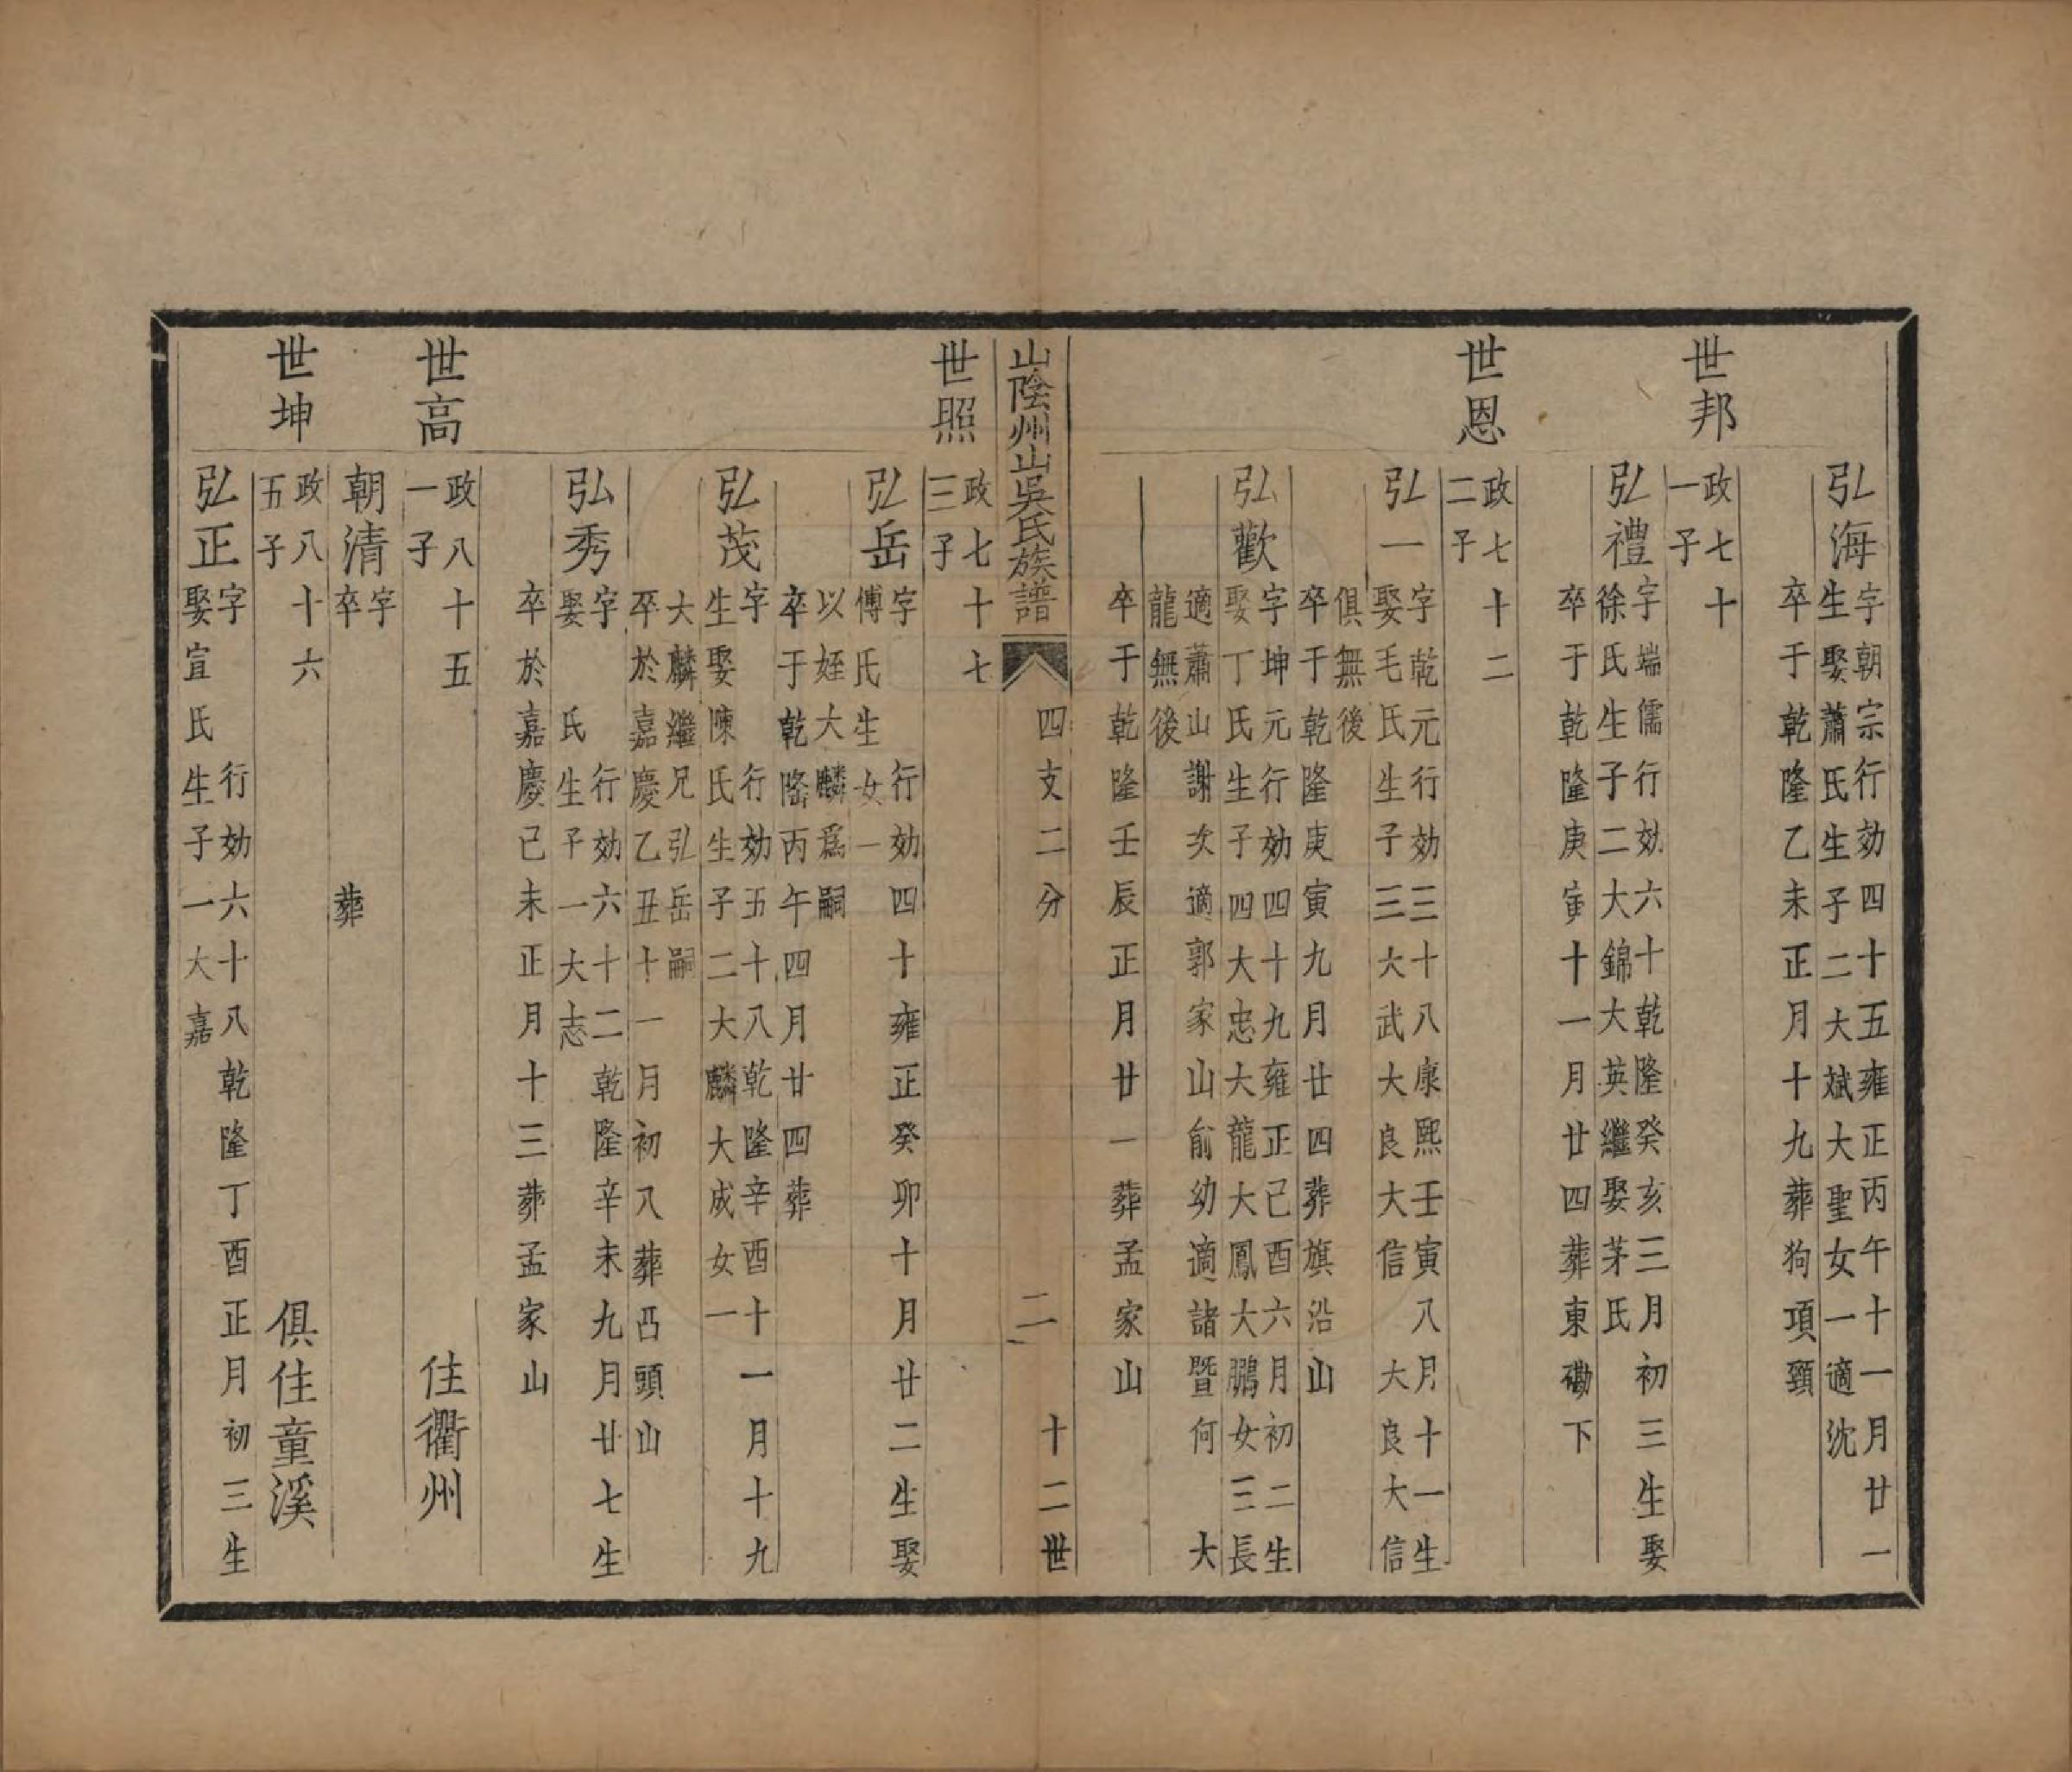 弘海
字朝宗行効四十五雍正丙午十一月廿一
生娶蕭氏生子二大斌大聖女一適沈
卒于乾隆乙未正月十九葬狗項頸
世邦
政七十
一子
弘禮
字端儒行効六十乾隆癸亥三月初三生娶
徐氏生子二大錦大英繼娶茅氏
卒于乾隆庚寅十一月廿四葬東磡下
世恩
政七十二
二子
弘一
字乾元行効三十八康熙壬寅八月十一生
娶毛氏生子三大武大良大信大良大信
俱無後
卒于乾隆庚寅九月廿四葬旗沿山
弘歡
字坤元行効四十九雍正己酉六月初二生
娶丁氏生子四大忠大龍大鳳大鵬女三長
適蕭山謝次適郭家山俞幼適諸暨何大
龍無後
卒于乾隆壬辰正月廿一葬孟家山
山陰州山吳氏族譜
四支二分
二
十二世
世照
政七十七
三子
弘岳
字行効四十雍正癸卯十月廿二生娶
傅氏生女一
以姪大麟為嗣
卒于乾隆丙午四月廿四葬
弘茂
字行効五十八乾隆辛酉十一月十九
生娶陳氏生子二大麟大成女一
大麟繼兄弘岳嗣
卒於嘉慶乙丑十一月初八葬凸頭山
弘秀
字行効六十二乾隆辛未九月廿七生
娶氏生子一大志
卒於嘉慶己未正月十三葬孟家山
世高
政八十五
一子
住衢州
朝清
字
卒葬
世坤
政八十六
五子
俱住童溪
弘正
字行効六十八乾隆丁酉正月初三生
娶宣氏生子一大嘉